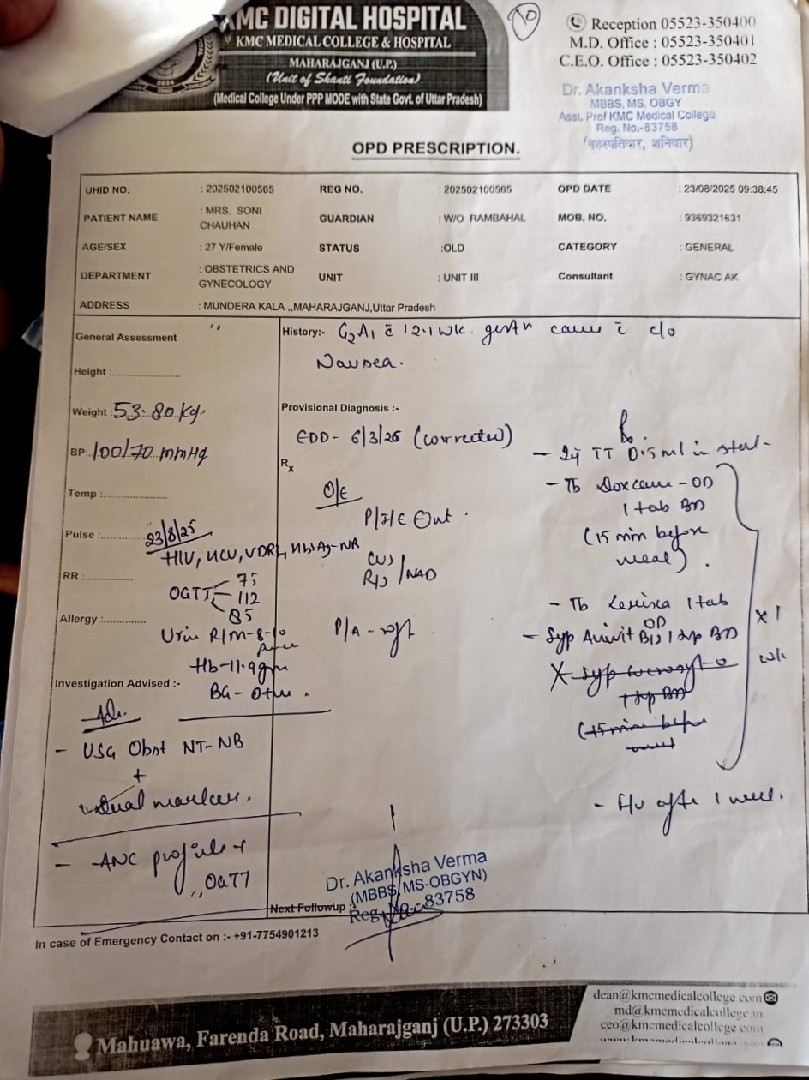 KMC DIGITAL HOSPITAL
KMC MEDICAL COLLEGE & HOSPITAL
MAHARAJGANJ (U.P.)
(Unit of Shanti Foundation)
(Medical College Under PPP MODE with State Govt. of Uttar Pradesh)
Reception 05523-350400
M.D. Office : 05523-350401
C.E.O. Office : 05523-350402
Dr. Akanksha Verma
MBBS, MS, OBGY
Asst. Prof KMC Medical College
Reg. No.-83758
(बृहस्पतिवार, शनिवार)
OPD PRESCRIPTION.
UHID NO. : 202502100565 REG NO. : 202502100565 OPD DATE : 23/08/2025 09:38:45
PATIENT NAME : MRS. SONI CHAUHAN GUARDIAN : W/O RAMBAHAL MOB. NO. : 9369321631
AGE/SEX : 27 Y/Female STATUS :OLD CATEGORY : GENERAL
DEPARTMENT : OBSTETRICS AND GYNECOLOGY UNIT : UNIT III Consultant : GYNAC AK
ADDRESS : MUNDERA KALA ,,MAHARAJGANJ,Uttar Pradesh
General Assessment
Height
Weight 53.80 kg
BP 100/70 mmHg
Temp
Pulse
23/8/25
HIV, HCV, VDRL, HbsAg-NR
RR
OGTT 75
112
85
Allergy
Urine R/M-8-10
Hb-11.9gm
BG- O+ve.
Investigation Advised :-
Adv.
- USG Obst NT-NB
+
dual marker.
- ANC profile +
OGTT
History:- G2A1 c̄ 12.1 wk gestn came c̄ c/o
Nausea.
Provisional Diagnosis :-
EDD- 6/3/26 (corrected)
Rx
O/E
P/I/C
CVS
R/S / NAD
P/A - soft
Rx
- Inj TT 0.5ml im stat
- Tb Doxcam - OD
1 tab BD
(15 min before
meal).
- Tb 1 tab
OD
- Syp B12 1 tsp BD
x 1
wk
X syp
1 tsp BD
(15 min before
meal)
- F/U after 1 week.
Dr. Akanksha Verma
(MBBS, MS-OBGYN)
Reg. No.-83758
Next Followup :
In case of Emergency Contact on :- +91-7754901213
Mahuawa, Farenda Road, Maharajganj (U.P.) 273303
dean@kmcmedicalcollege.com
md@kmcmedicalcollege.in
ceo@kmcmedicalcollege.com